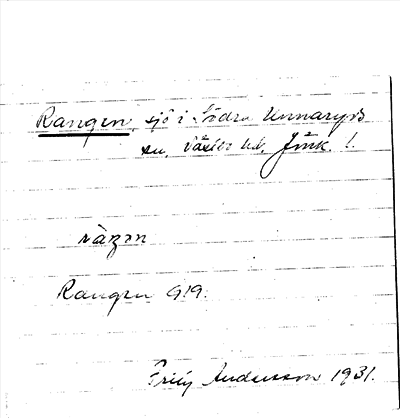 Rangen, sjö i Södra Unnaryds
sn, Västbo hd, Jönk. l.
ràŋən
Rangen G19.
Frity Andersson 1931.